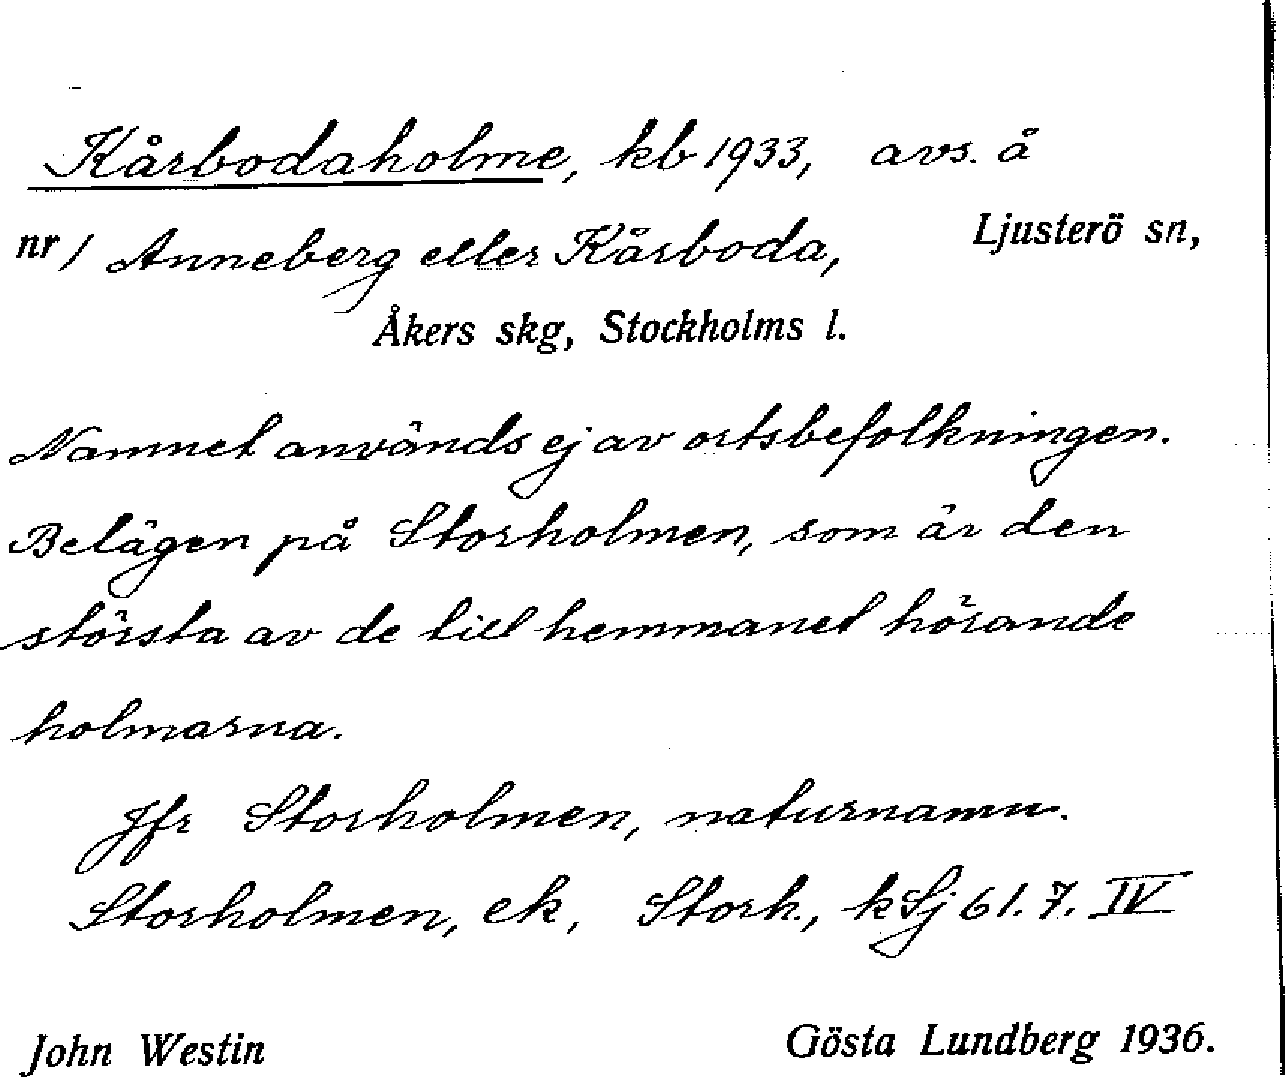 Kårbodaholme, kb 1933, avs. å
nr 1 Anneberg eller Kårboda, Ljusterö sn,
Åkers skg, Stockholms l.
Namnet används ej av ortsbefolkningen.
Belägen på Storholmen, som är den
största av de till hemmanet hörande
holmarna.
Jfr Storholmen, naturnamn.
Storholmen, ek, Storh., k Sj 61. 7. IV
John Westin Gösta Lundberg 1936.